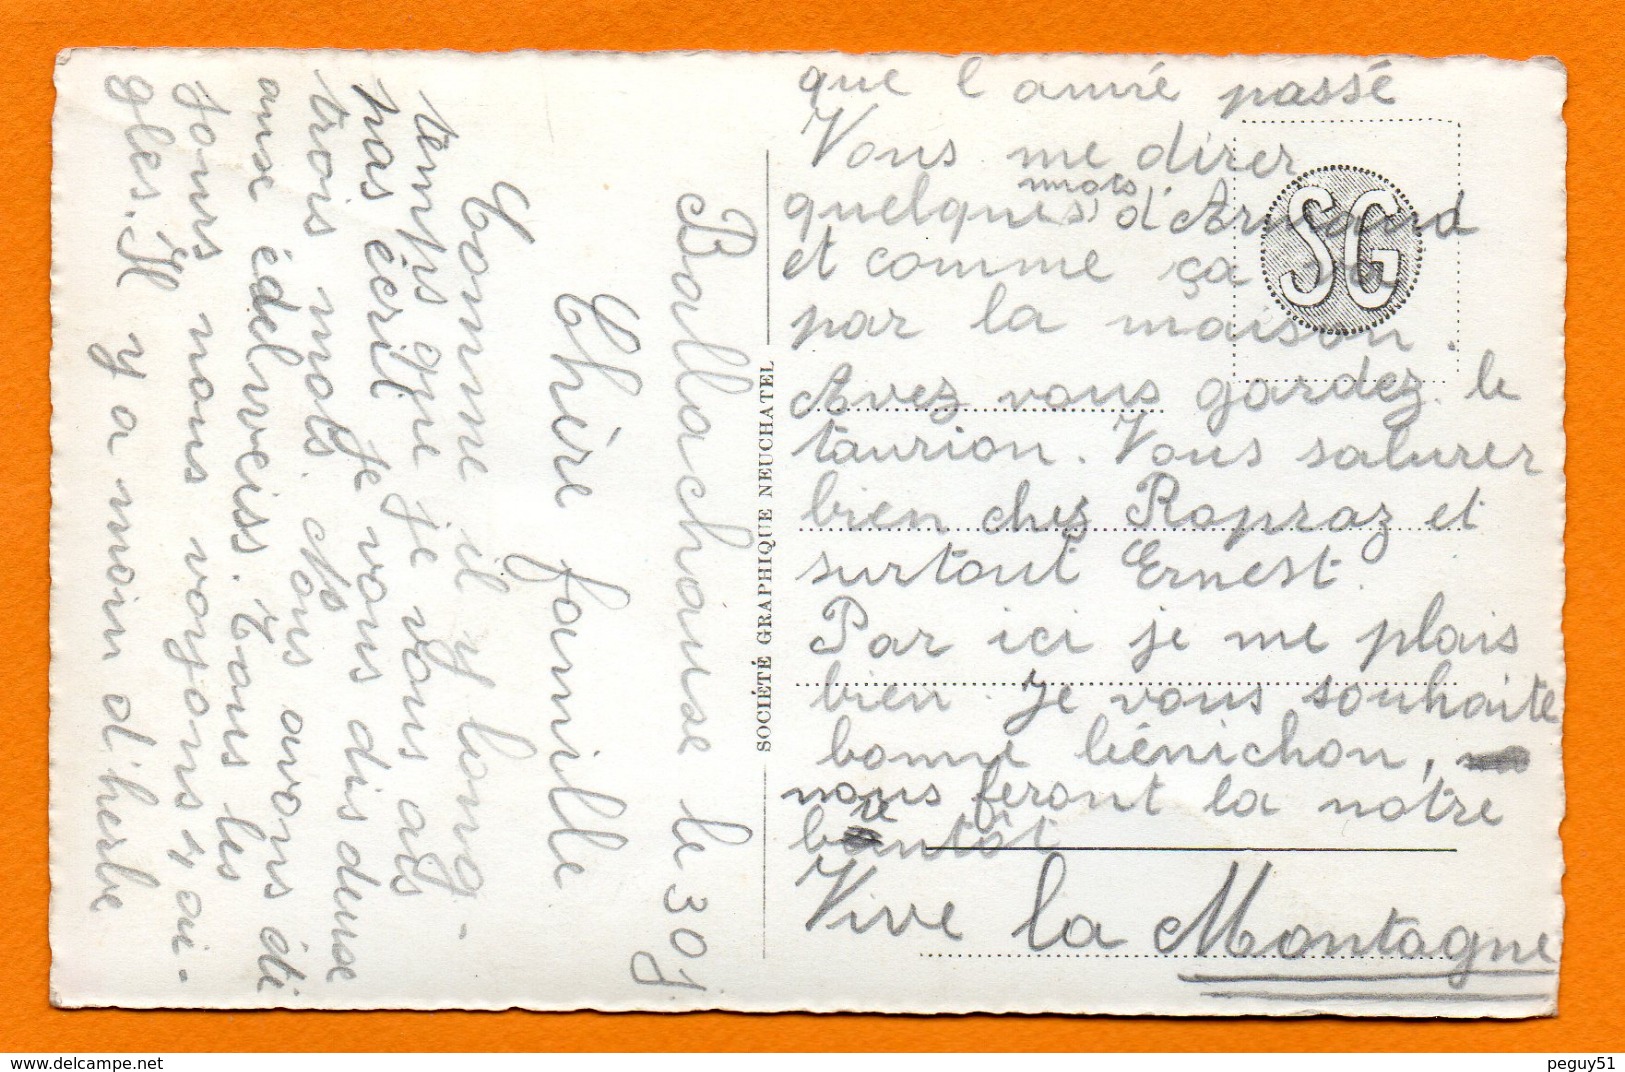 Ballachause le 30 j
Chère famille
Comme il y long-
temps que je vous ais
pas écrit je vous dis deuse
trois mots. Nous avons été
aux édelweiss. Tous les
jours nous voyons 4 ai-
gles. Il y a moin d'herbe
que l'anné passé
Vous me direz
quelques mots d'Armand
et comme ça va
par la maison.
Avez vous gardez le
taurion. Vous salurer
bien chez Rapraz et
surtout Ernest.
Par ici je me plais
bien. Je vous souhaite
bonne bénichon,
nous feront la notre
Vive la Montagne
SOCIÉTÉ GRAPHIQUE NEUCHATEL
SG
peguy51